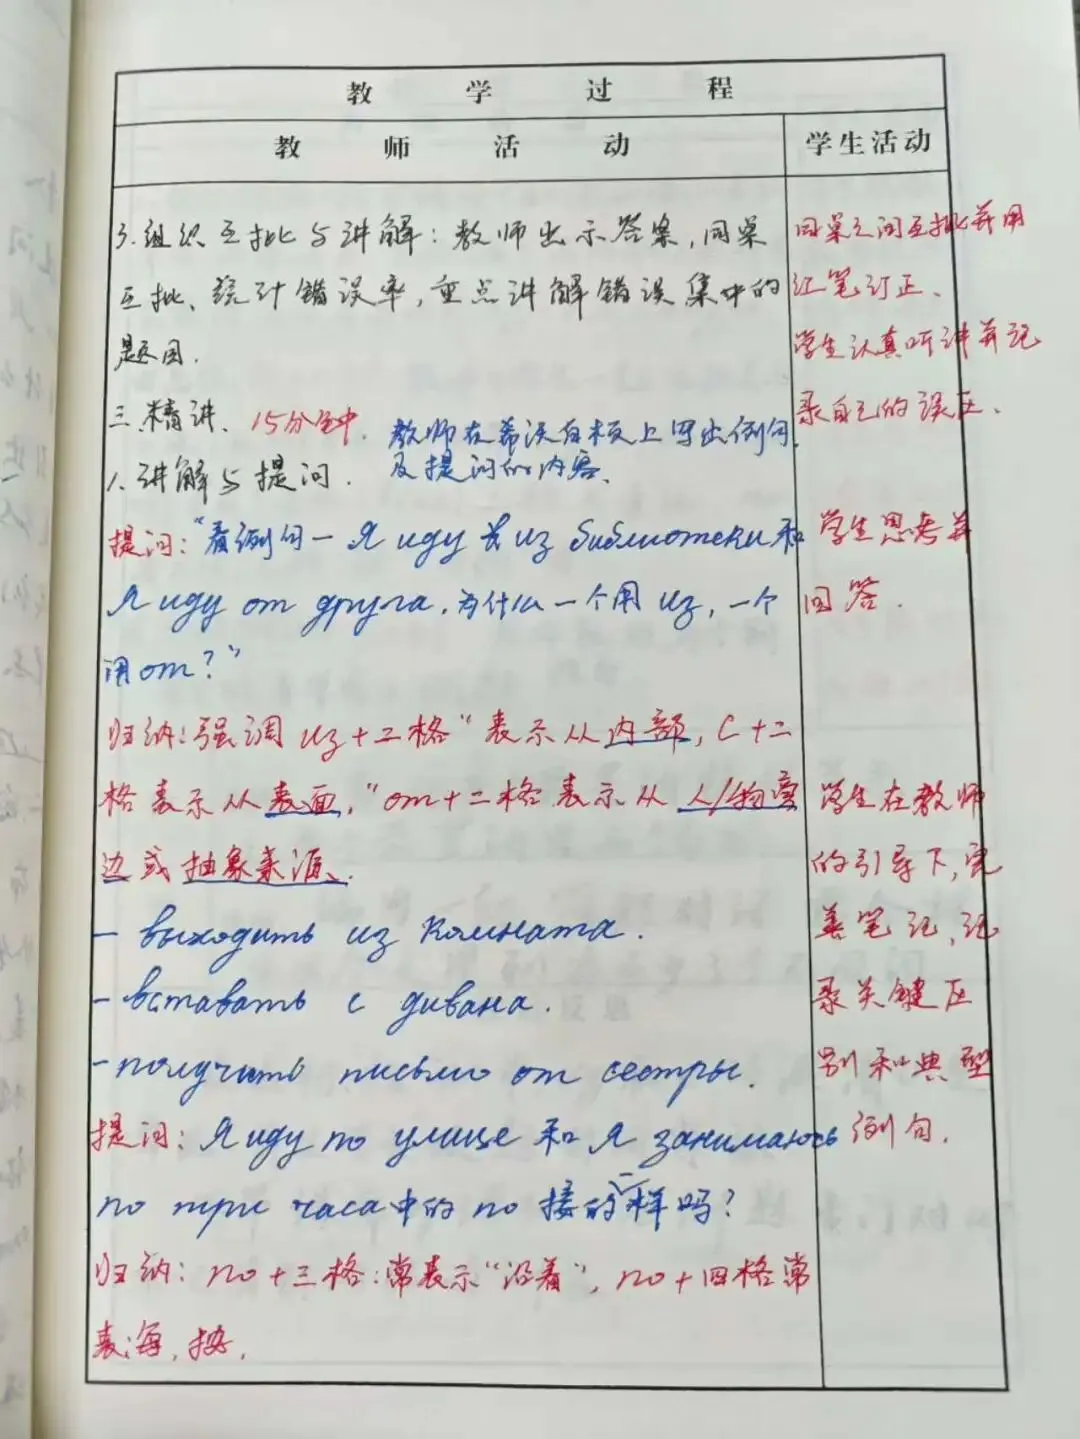 教 学 过 程
教 师 活 动
学生活动
3.组织互批与讲解：教师出示答案，同桌
互批、统计错误率，重点讲解错误集中的
题目.
三.精讲、15分钟. 教师在希沃白板上写出例句
及提问的内容、
1.讲解与提问.
提问：“看例句一 Я иду из библиотеки 和
Я иду от друга, 为什么一个用 из, 一个
用от？”
归纳：强调 из+二格“表示从内部, с+二
格表示从表面, “от+二格表示从 人/物旁
边或抽象来源、.
- выходить из комната.
- вставать с дивана.
- получить письмо от сестры.
提问：Я иду по улице 和 Я занимаюсь
по три часа中的 по 接的一样吗？
归纳：по+三格：常表示“沿着”, по+四格常
表：每, 按.
同桌之间互批并用
红笔订正、
学生认真听讲并记
录自己的误区、
学生思考并
回答.
学生在教师
的引导下,完
善笔记,记
录关键区
别和典型
例句.